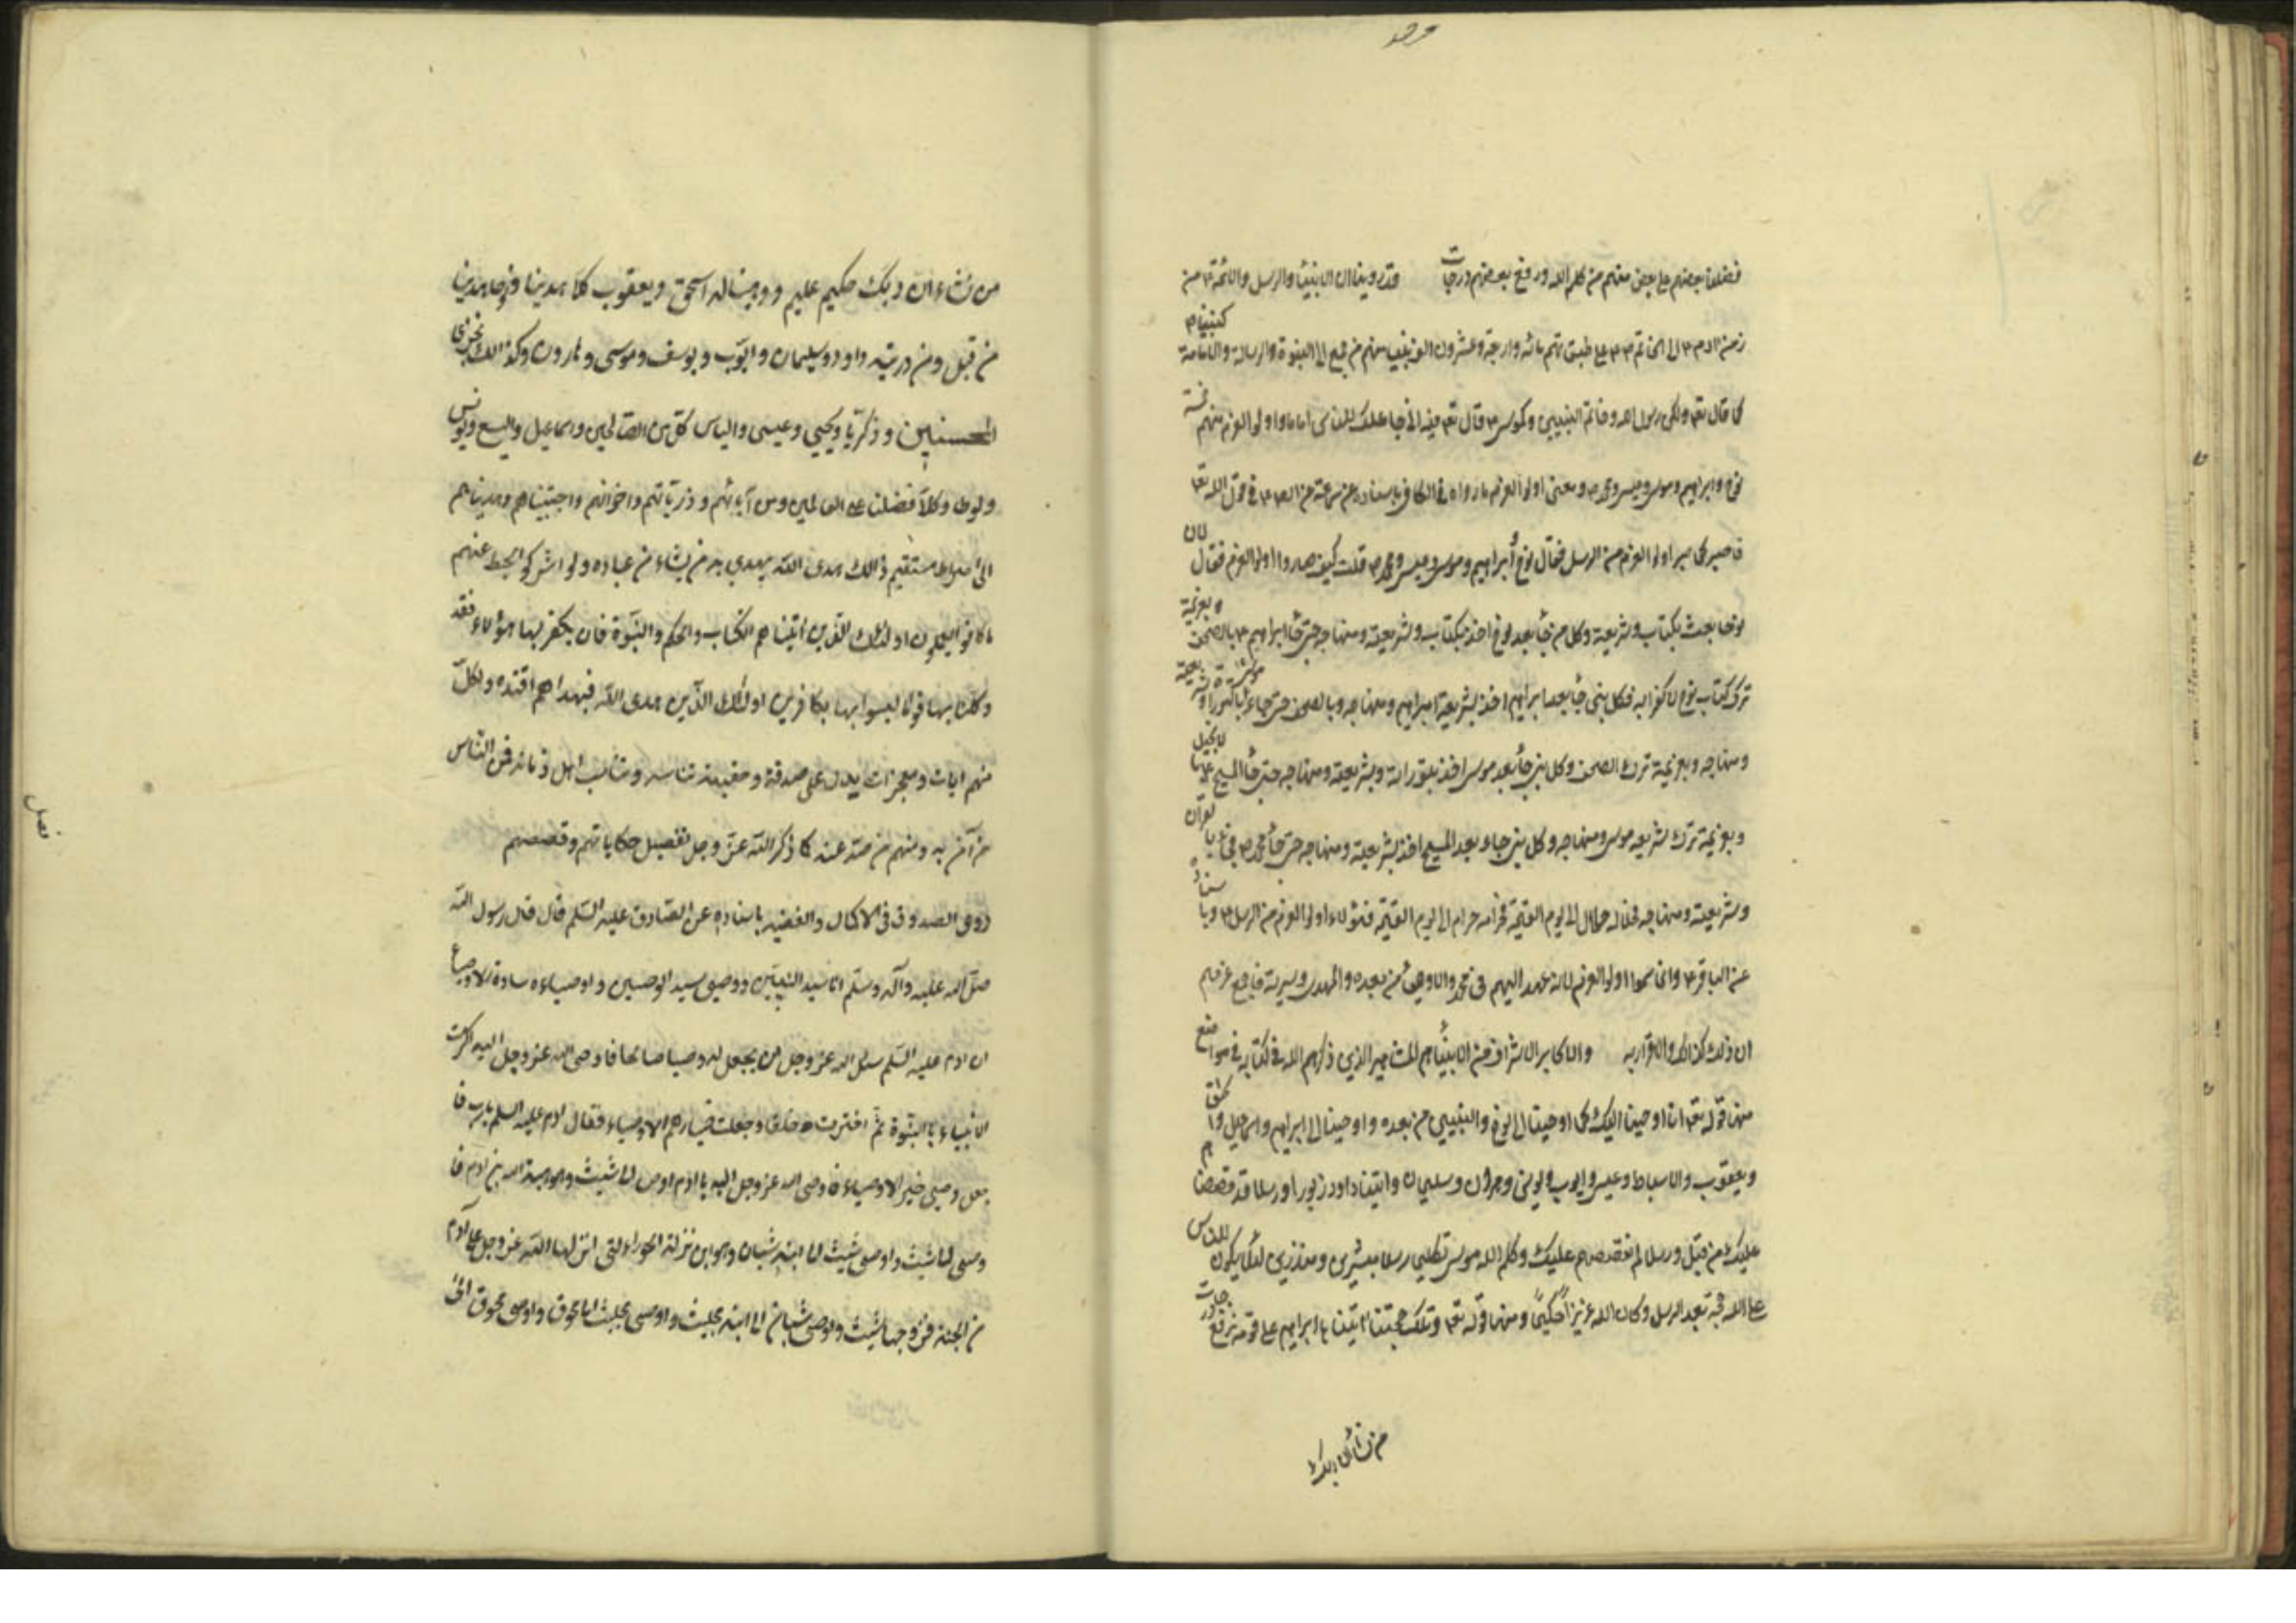 فضلنا بعضهم على بعض منهم من كلم الله ورفع بعضهم درجات وقد روينا ان الانبيئا والرسل والائمة من
زمن ادم الى الخاتم على طبقتهم مائه واربعة وعشرون الف نبيا منهم من جمع الى النبوة والرسالة والامامة كنبينا
كما قال تع ولكن رسول الله وخاتم النبيين وكموسى قال تع فيه اني جاعلك للناس اماما واولو العزم منهم خمسة
نوح وابراهيم وموسى وعيسى ومحمد ومعنى اولو العزم ما رواه في الكافي باسناده عن سماعة عن الص في قول الله تع
فاصبر كما صبر اولو العزم من الرسل فقال نوح وابراهيم وموسى وعيسى ومحمد قلت كيف صاروا اولو العزم فقال لان
نوحا بعث بكتاب وشريعة وكل من جأ بعد نوح اخذ بكتاب وشريعته ومنهاجه حتى جأ ابراهيم بالصحف وبعزيمة
ترك كتاب نوح لا كفرا به فكل نبي جأ بعد ابراهيم اخذ بشريعة ابراهيم ومنهاجه وبالصحف حتى جاء موسى بالتوراة وشريعته
ومنهاجه وبعزيمة ترك الصحف وكل نبي جأ بعد موسى اخذ بتوراة وبشريعته ومنهاجه حتى جأ المسيح بالانجيل
وبعزيمة ترك شريعه موسى ومنهاجه وكل نبي جاء بعد المسيح اخذ بشريعته ومنهاجه حتى جأ محمد بالقرآن
وشريعته ومنهاجه فحلاله حلال الى يوم القيمة وحرامه حرام الى يوم القيمة فهؤلاء اولو العزم من الرسل وباسناده
عن الباقر وانما سموا اولو العزم لانه عهد اليهم في محمد والاوصيأ من بعده والمهدي وسيرته فاجمع عزمهم
ان ذلك كذلك والاقرار به والاكابر الاشراف من الانبيأ هم المشاهير الذين ذكرهم الله في كتابه في مواضع
منها قوله تع انا اوحينا اليك كما اوحينا الى نوح والنبيين من بعده واوحينا الى ابراهيم واسماعيل واسحق
ويعقوب والاسباط وعيسى وايوب ويونس وهرون وسليمان واتينا داود زبورا ورسلا قد قصصناهم
عليك من قبل ورسلا لم نقصصهم عليك وكلم الله موسى تكليما رسلا مبشرين ومنذرين لئلا يكون للناس
على الله حجة بعد الرسل وكان الله عزيزا حكيما ومنها قوله تع وتلك حجتنا اتيناها ابراهيم على قومه نرفع درجات
من نشأ ان ربك
من نشاء ان ربك حكيم عليم ووهبنا له اسحق ويعقوب كلا هدينا ونوحا هدينا
من قبل ومن ذريته داود وسليمان وايوب ويوسف وموسى وهارون وكذالك نجزى
المحسنين وزكريا ويحيي وعيسى والياس كل من الصالحين واسماعيل واليسع ويونس
ولوطا وكلا فضلنا على العالمين ومن آبائهم وذرياتهم واخوانهم واجتبيناهم وهديناهم
الى صراط مستقيم ذالك هدى الله يهدي به من يشاء من عباده ولو اشركوا لحبط عنهم
ما كانوا يعملون اولئك الذين اتيناهم الكتاب والحكم والنبوة فان يكفر بها هؤلاء فقد
وكلنا بها قوما ليسوا بها بكافرين اولئك الذين هدى الله فبهداهم اقتده ولكل
منهم ايات ومعجزات يدل على صدقه وحقيته تناسبه وتناسب اهل زمانه فمن الناس
من آمن به ومنهم من صد عنه كما ذكر الله عز وجل تفصيل حكاياتهم وقصصهم
روى الصدوق في الاكمال والفقيه باسناده عن الصادق عليه السلم قال قال رسول الله
صلى الله عليه وآله وسلم انا سيد النبيين ووصيي سيد الوصيين واوصياءه سادة الاوصياء
ان ادم عليه السلم سئل الله عز وجل ان يجعل له وصيا صالحا فاوحى الله عز وجل اليه اكرمت
الانبياء بالنبوة ثم اخترت خلقا وجعلت خيارهم الاوصياء فقال ادم عليه السلم يارب فا
جعل وصيي خير الاوصياء فاوحى الله عز وجل اليه يا ادم اوص الى شيث وهو هبة الله بن ادم فا
وصى الى شيث واوصى شيث الى ابنه شبان وهو ابن نزلة الحوراء التي انزلها الله عز وجل على آدم
من الجنة فزوجها شيث واوصى شبان الى ابنه مجلث واوصى مجلث الى محوق واوصى محوق الى